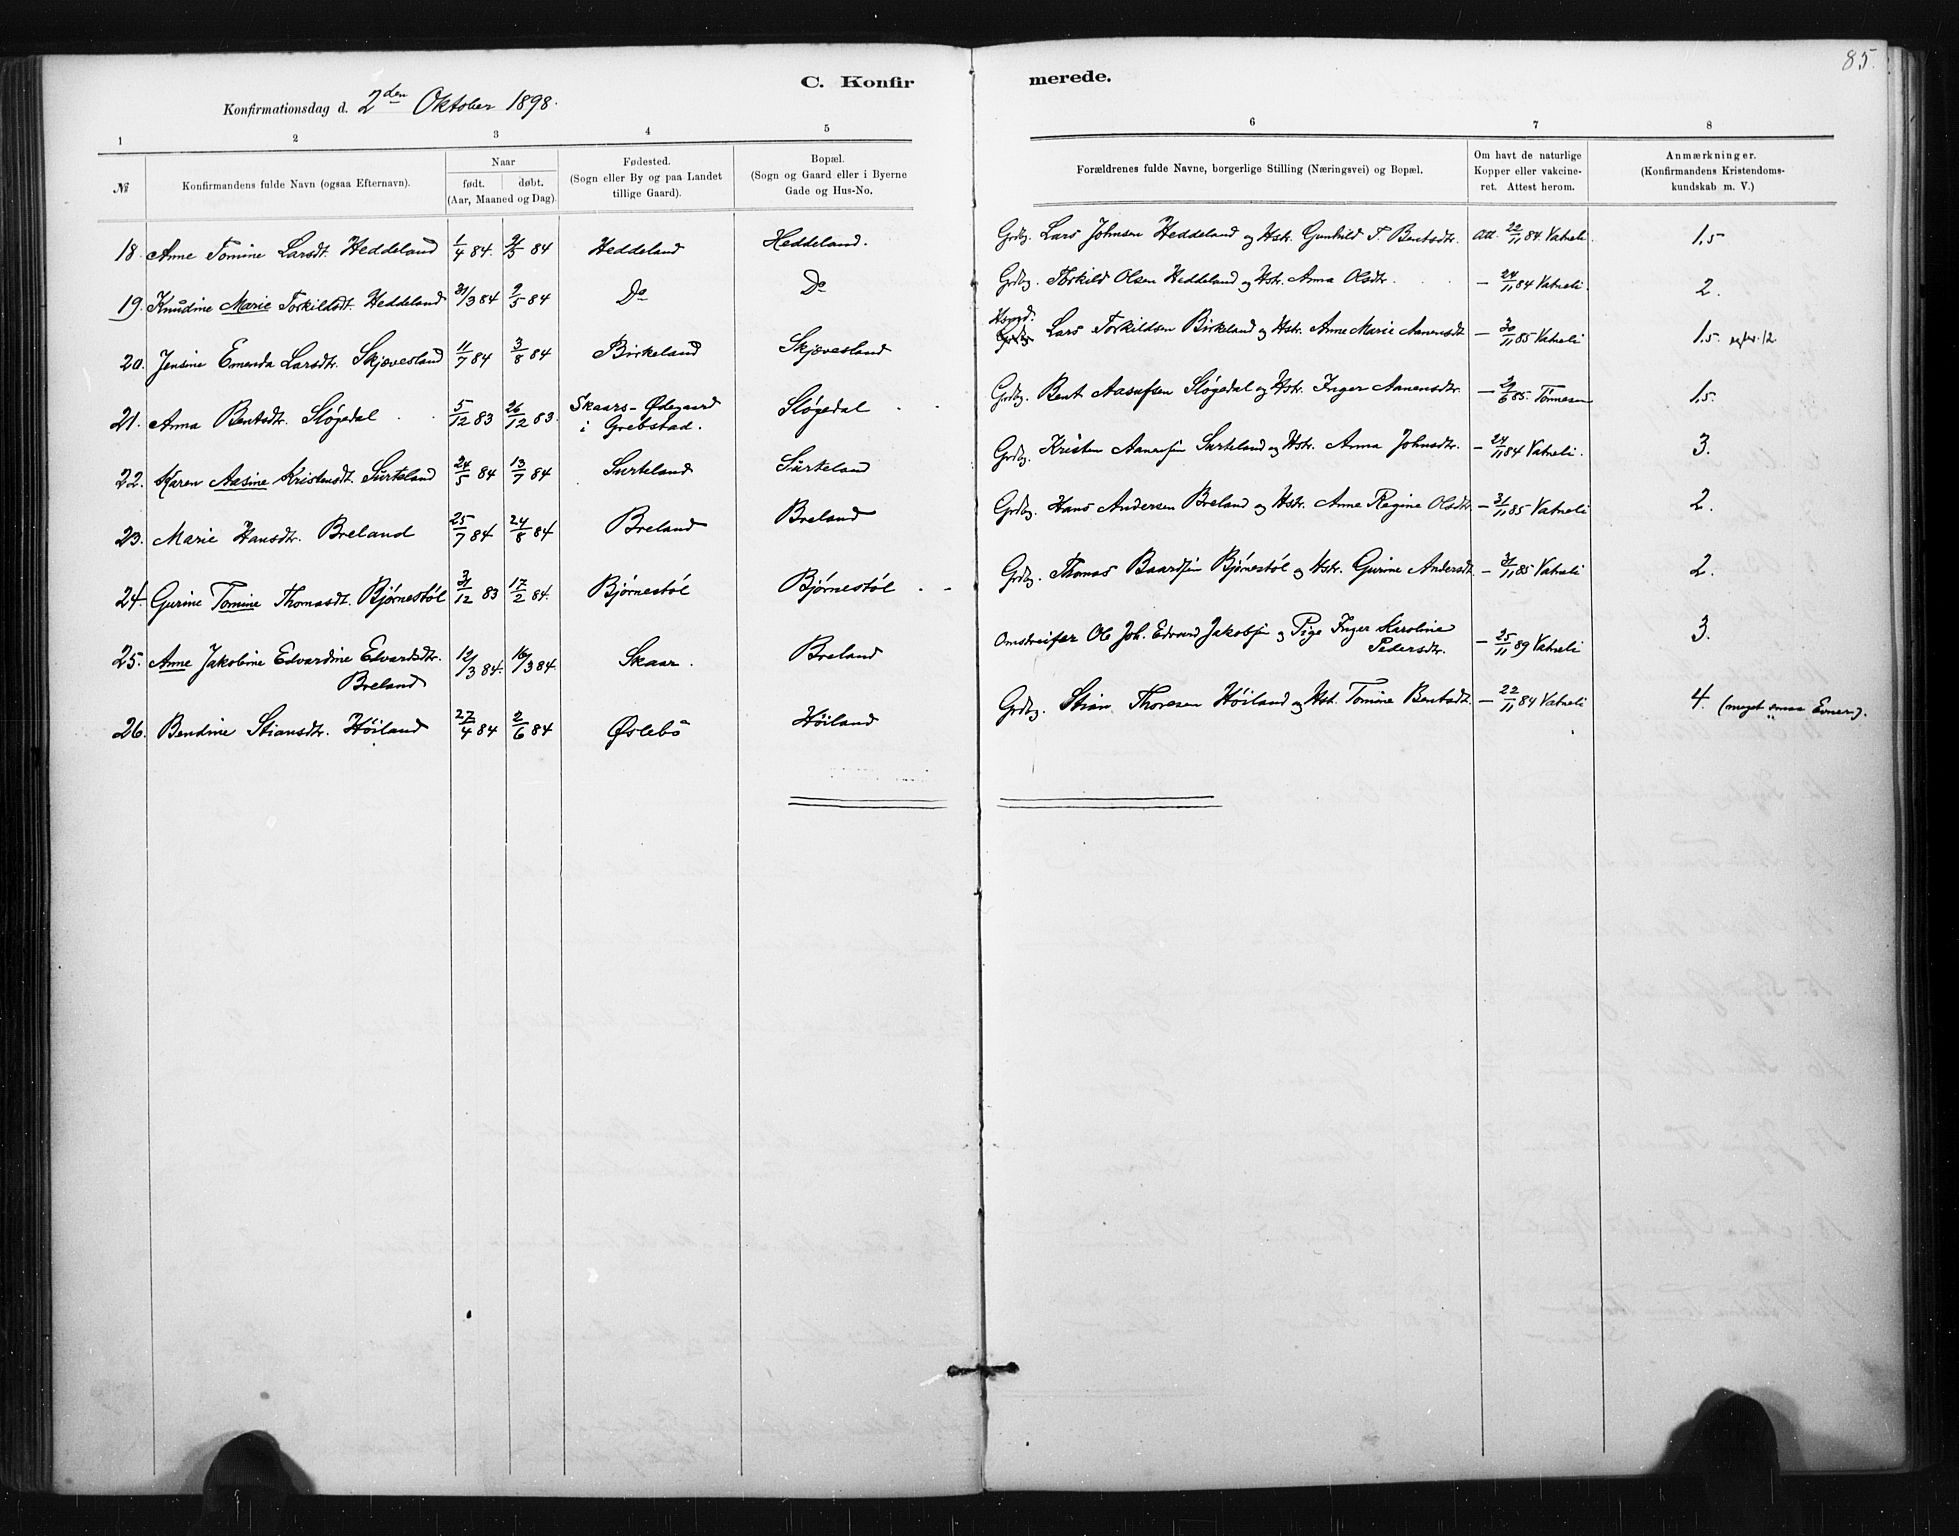 85.
C. Konfirmerede.
Konfirmationsdag d. 2den Oktober 1898.
1 2 3 4 5 6 7 8
№
Konfirmandens fulde Navn (ogsaa Efternavn).
Naar
født. døbt.
(Aar, Maaned og Dag).
Fødested.
(Sogn eller By og paa Landet
tillige Gaard).
Bopæl.
(Sogn og Gaard eller i Byerne
Gade og Hus-No.
Forældrenes fulde Navne, borgerlige Stilling (Næringsvei) og Bopæl.
Om havt de naturlige
Kopper eller vakcine-
ret. Attest herom.
Anmærkninger.
(Konfirmandens Kristendoms-
kundskab m. V.)
18. Anne Tomine Larsdt. Heddeland 1/4 84. 84 Heddeland Heddeland. Grdbg. Lars Johnsen Heddeland og Hstr. Gunhild T. Bentsdtr. Att. 22/11 84 Vatneli. 1,5
19. Knudine Marie Torkildsdt. Heddeland 31/3 84 2/5 84 Do Do Grdbg. Torkild Olsen Heddeland og Hstr. Anna Olsdtr. - 24/11 84 Vatneli. 2.
20. Jensine Emenda Larsdtr. Skjævesland 11/7 84 3/8 84 Birkeland Skjævesland Lars Torkildsen Birkeland og Hstr. Anne Marie Aanensdt - 30/11 85 Vatneli 1,5
21. Anna Bentsdtr. Sløgedal 5/12 83 26/12 83. Skaars-Ødegaard
i Grebstad. Sløgedal Grdbg. Bent Aasulfsen Sløgedal og Hstr. Inger Aanensdtr. 85. Tönnesen 1,5.
22. Karen Aasine Kristensdt. Surteland 24/5 84 13/7 84 Surteland Surteland Grdbg. Kristen Aanensen Surteland og Hstr. Anna Johnsdtr. - 24/11 84 Vatneli. 3.
23. Marie Hansdtr. Breland 25/7 84 24/8 84 Breland Breland Grdbg. Hans Andersen Breland og Hstr. Anne Regine Olsdtr - 3/11 85 Vatneli 2.
24. Gurine Tomine Thomasdt. Bjørnestøl 31/12 83 17/2 84. Bjørnestøl Bjørnestøl Grdbg. Thomas Baardsen Bjørnestøl og Hstr. Gurine Andersdt. - 3/11 85 Vatneli 2.
25. Anne Jakobine Edvardine Edvardsdtr.
Breland 12/3 84. 16/3 84. Skaar. Breland Omstreifer Ole Joh. Edvard Jakobsen og Pige Inger Karoline
Pedersdtr. - 25/11 89 Vatneli 3.
26. Bendine Stiansdtr. Høiland 27/4 84 2/6 84 Øslebö Høiland Grdbg. Stian Thoresen Høiland og Hstr. Tomine Bentsdt. - 22/11 84 Vatneli 4. (meget smaa Evner).